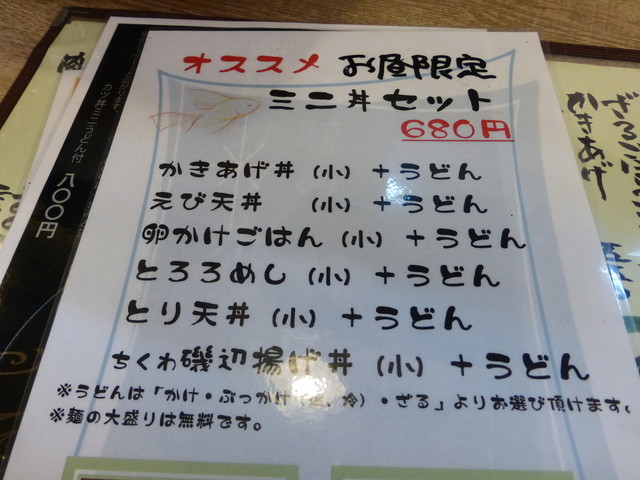 オススメ お昼限定
ミニ丼セット
680円
かきあげ丼 (小) +うどん
えび天丼 (小) +うどん
卵かけごはん (小) +うどん
とろろめし (小) +うどん
とり天丼 (小) +うどん
ちくわ磯辺揚げ丼 (小) +うどん
※うどんは「かけ・ぶっかけ 、冷)・ざる」よりお選び頂けます。
※麺の大盛りは無料です。
カツ丼ミニうどん付 八〇〇円
かきあげ